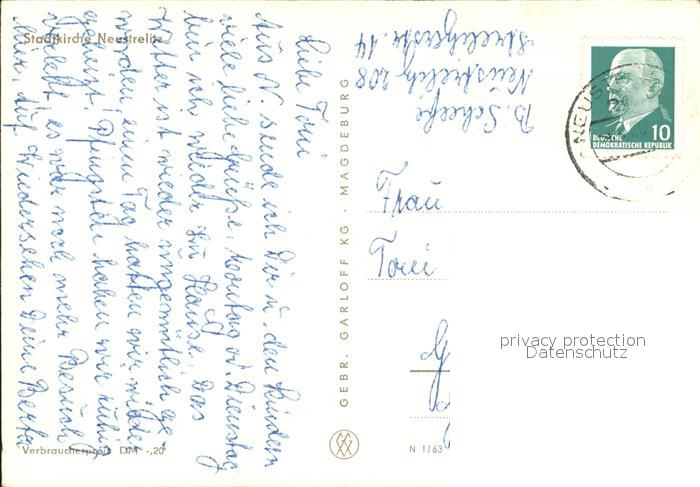 Stadtkirche Neustrelitz
Liebe Toni
Aus N. sende ich Dir u. den Kindern
viele liebe Grüße. Montag od. Dienstag
bin ich wieder zu Hause. Das
Wetter ist wieder ungemütlich ge-
worden einen Tag hatten wir wieder
geheizt. Pfingsten haben wir ruhig
verlebt, es war noch mehr Besuch
hier. Auf Wiedersehen Deine Berta
Verbraucherpreis DM -,20
GEBR. GARLOFF KG · MAGDEBURG
N 1/63
B. Scheefe
Neustrelitz 208
Strelitzerstr. 14
Frau
Toni
NEUS
DEUTSCHE
DEMOKRATISCHE REPUBLIK
10
privacy protection
Datenschutz